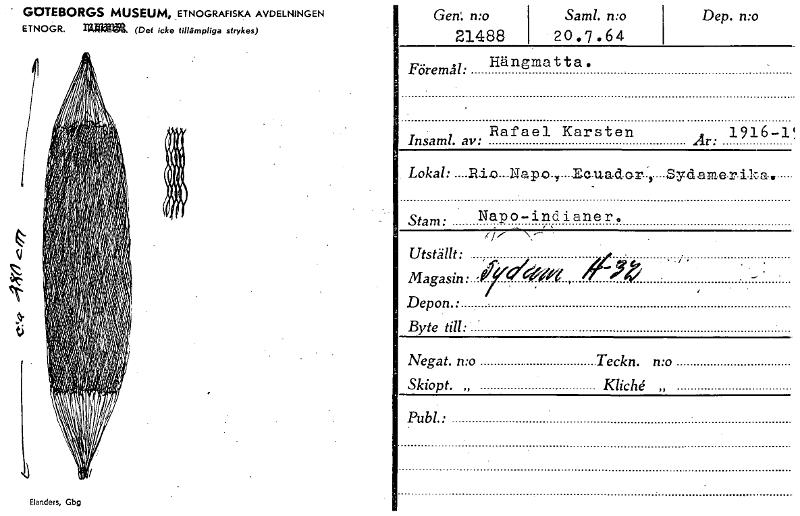 GÖTEBORGS MUSEUM, ETNOGRAFISKA AVDELNINGEN
ETNOGR. (Det icke tillämpliga strykes)
c:a 480 cm
Elanders, Gbg
Gen. n:o Saml. n:o Dep. n:o
21488 20.7.64
Föremål: Hängmatta.
Insaml. av: Rafael Karsten År: 1916-19
Lokal: Rio Napo, Ecuador, Sydamerika.
Stam: Napo-indianer.
Utställt:
Magasin: Sydam H-32
Depon.:
Byte till:
Negat. n:o Teckn. n:o
Skiopt. „ Kliché „
Publ.: